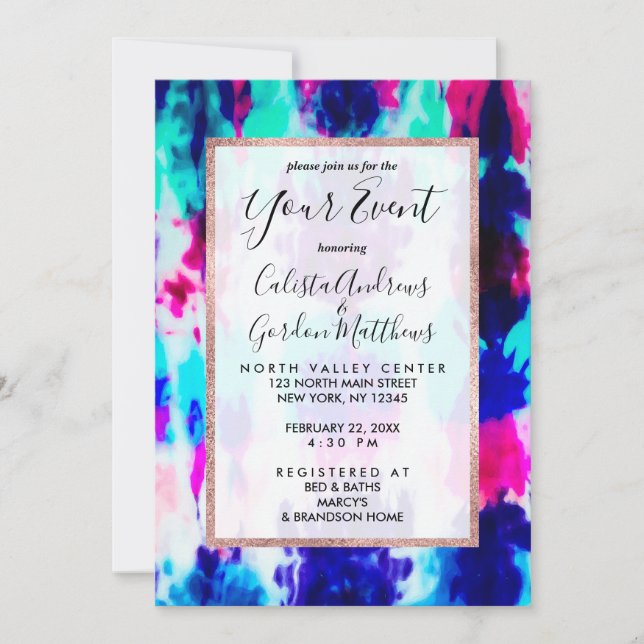 please join us for the
Your Event
honoring
Calista Andrews
&
Gordon Matthews
NORTH VALLEY CENTER
123 NORTH MAIN STREET
NEW YORK, NY 12345
FEBRUARY 22, 20XX
4:30 PM
REGISTERED AT
BED & BATHS
MARCY'S
& BRANDSON HOME